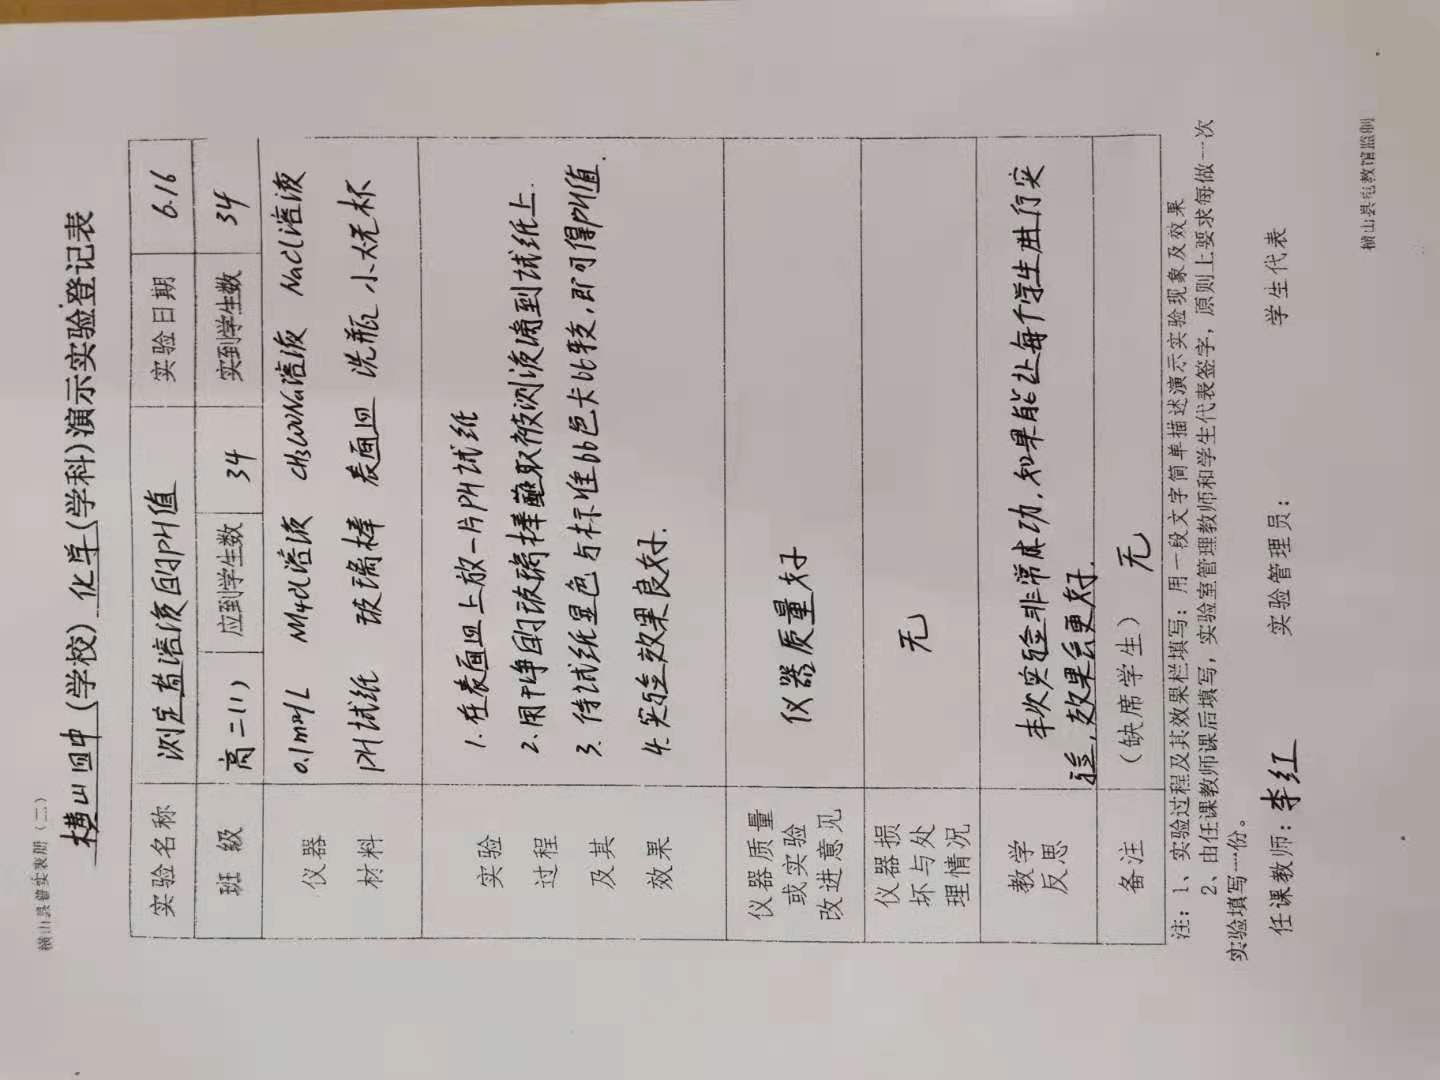 横山县督实表册（二）
横山四中(学校) 化学(学科)演示实验登记表
实验名称 测定盐溶液的PH值 实验日期 6.16
班 级 高二(1) 应到学生数 34 实到学生数 34
仪器 0.1mol/L NH4Cl溶液 CH3COONa溶液 NaCl溶液
材料 PH试纸 玻璃棒 表面皿 洗瓶 小烧杯
实验 1.在表面皿上放一片PH试纸
过程 2.用干净的玻璃棒蘸取被测液滴到试纸上.
及其 3.待试纸显色与标准比色卡比较,即可得PH值.
效果 4.实验效果良好.
仪器质量
或实验 仪器质量好
改进意见
仪器损
坏与处 无
理情况
教学 本次实验非常成功,如果能让每个学生进行实
反思 验,效果会更好.
备注 (缺席学生) 无
注：1、实验过程及其效果栏填写：用一段文字简单描述演示实验现象及效果
2、由任课教师课后填写，实验室管理教师和学生代表签字，原则上要求每做一次
实验填写一份。
任课教师：李红 实验管理员： 学生代表
横山县电教馆监制